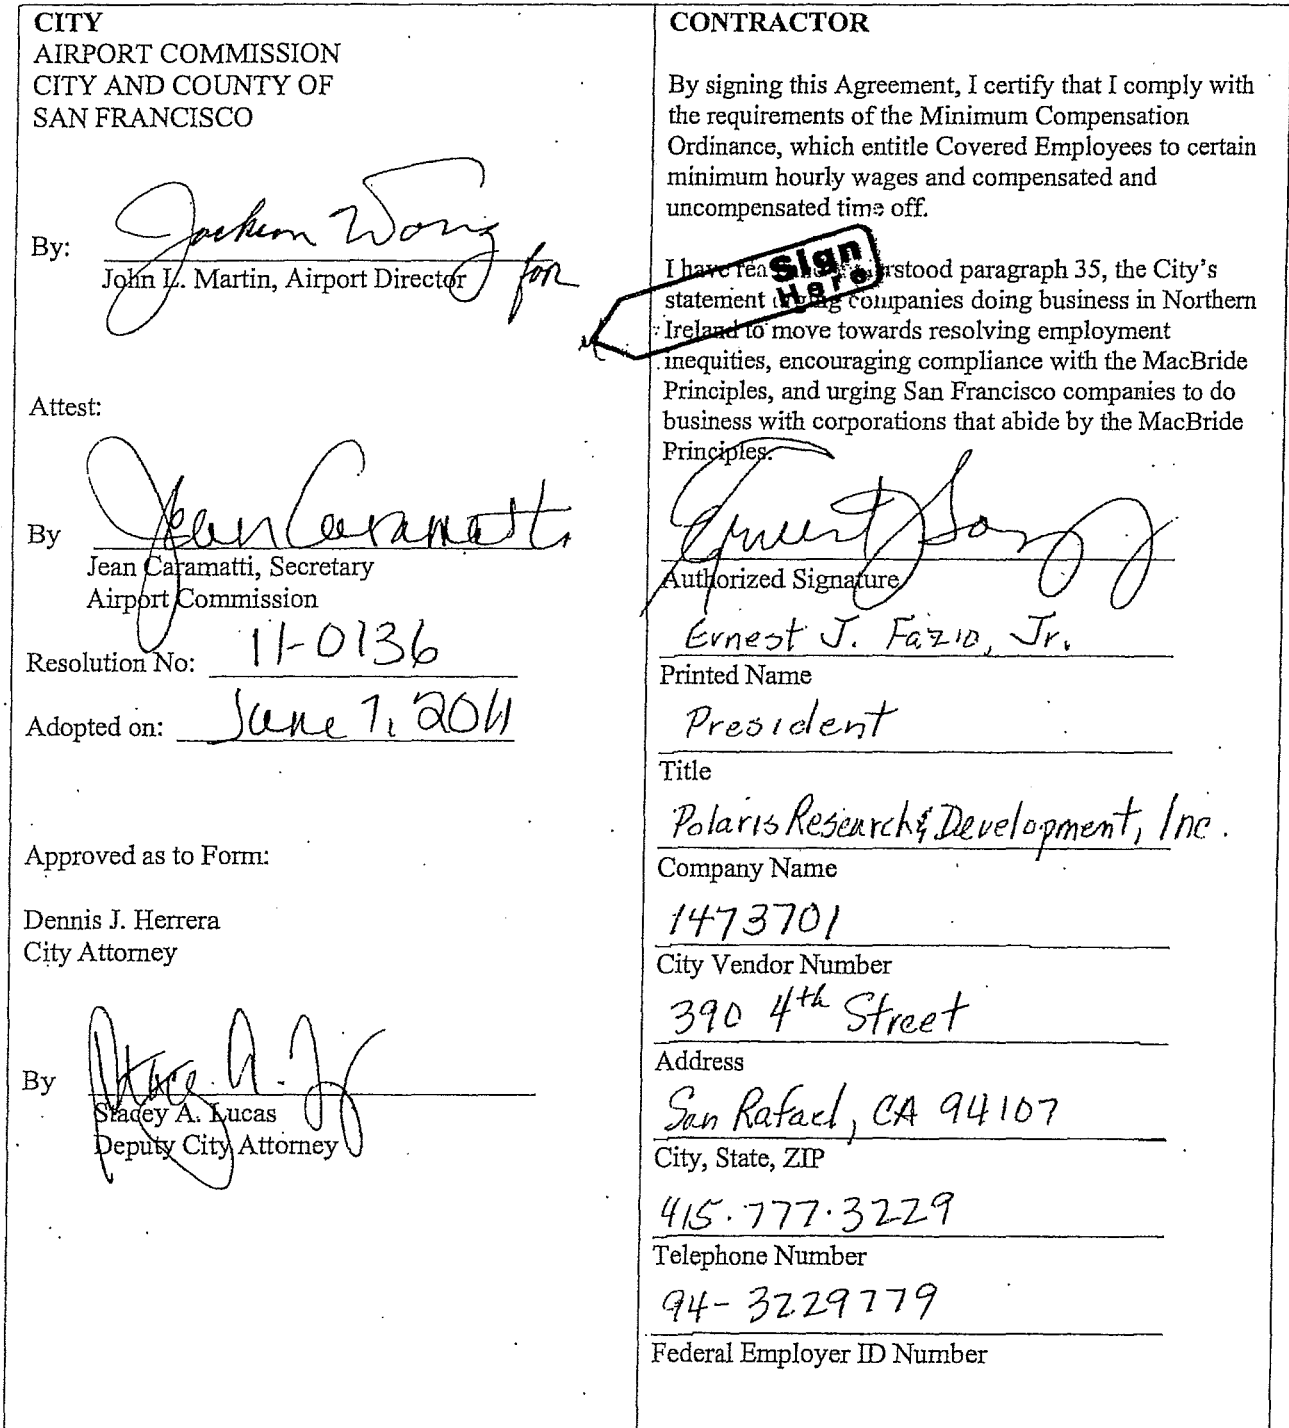 CITY
AIRPORT COMMISSION
CITY AND COUNTY OF
SAN FRANCISCO
Jackson Wong
By:
for
John L. Martin, Airport Director
Attest:
Jean Caramatti
By
Jean Caramatti, Secretary
Airport Commission
Resolution No: 11-0136
Adopted on: June 7, 2011
Approved as to Form:
Dennis J. Herrera
City Attorney
By
Stacey A. Lucas
Deputy City Attorney
CONTRACTOR
By signing this Agreement, I certify that I comply with
the requirements of the Minimum Compensation
Ordinance, which entitle Covered Employees to certain
minimum hourly wages and compensated and
uncompensated time off.
Sign
Here
I have rea rstood paragraph 35, the City's
statement companies doing business in Northern
Ireland to move towards resolving employment
inequities, encouraging compliance with the MacBride
Principles, and urging San Francisco companies to do
business with corporations that abide by the MacBride
Principles.
Authorized Signature
Ernest J. Fazio, Jr.
Printed Name
President
Title
Polaris Research & Development, Inc.
Company Name
1473701
City Vendor Number
390 4th Street
Address
San Rafael, CA 94107
City, State, ZIP
415.777.3229
Telephone Number
94-3229779
Federal Employer ID Number